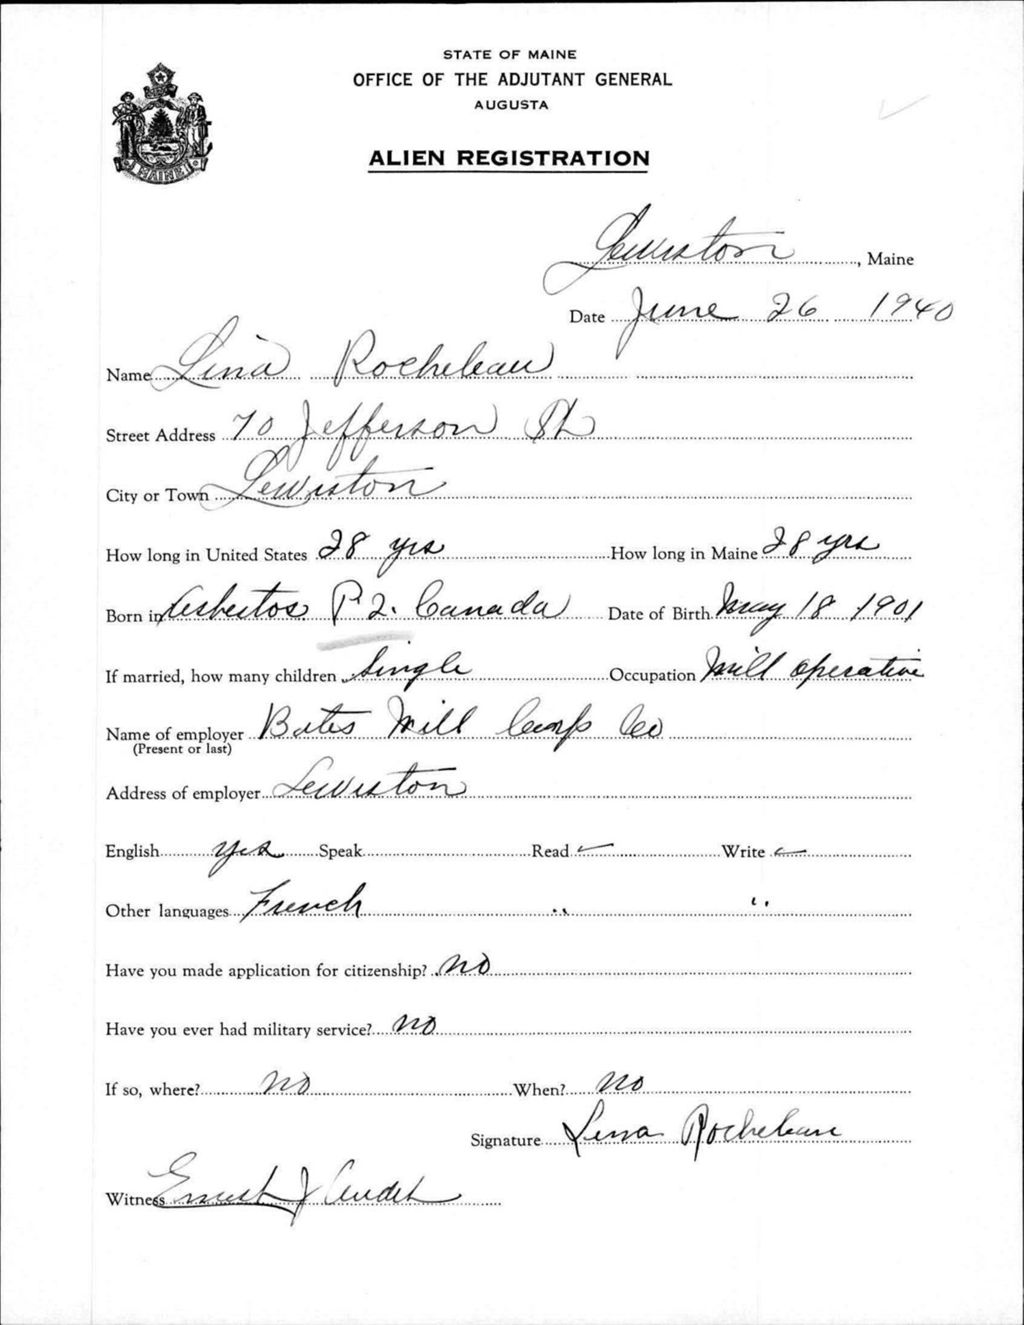 STATE OF MAINE
OFFICE OF THE ADJUTANT GENERAL
AUGUSTA
ALIEN REGISTRATION
MAINE
Lewiston, Maine
Date June 26 1940
Name Lina Rocheleau
Street Address 70 Jefferson St
City or Town Lewiston
How long in United States 28 yrs How long in Maine 28 yrs
Born in Asbestos P Q. Canada Date of Birth May 18 1901
If married, how many children Single Occupation Mill operative
Name of employer Bates Mill Comp Co
(Present or last)
Address of employer Lewiston
English yes Speak Read ✓ Write ✓
Other languages French " "
Have you made application for citizenship? No
Have you ever had military service? No
If so, where? No When? No
Signature Lina Rocheleau
Witness Ernest J Audet